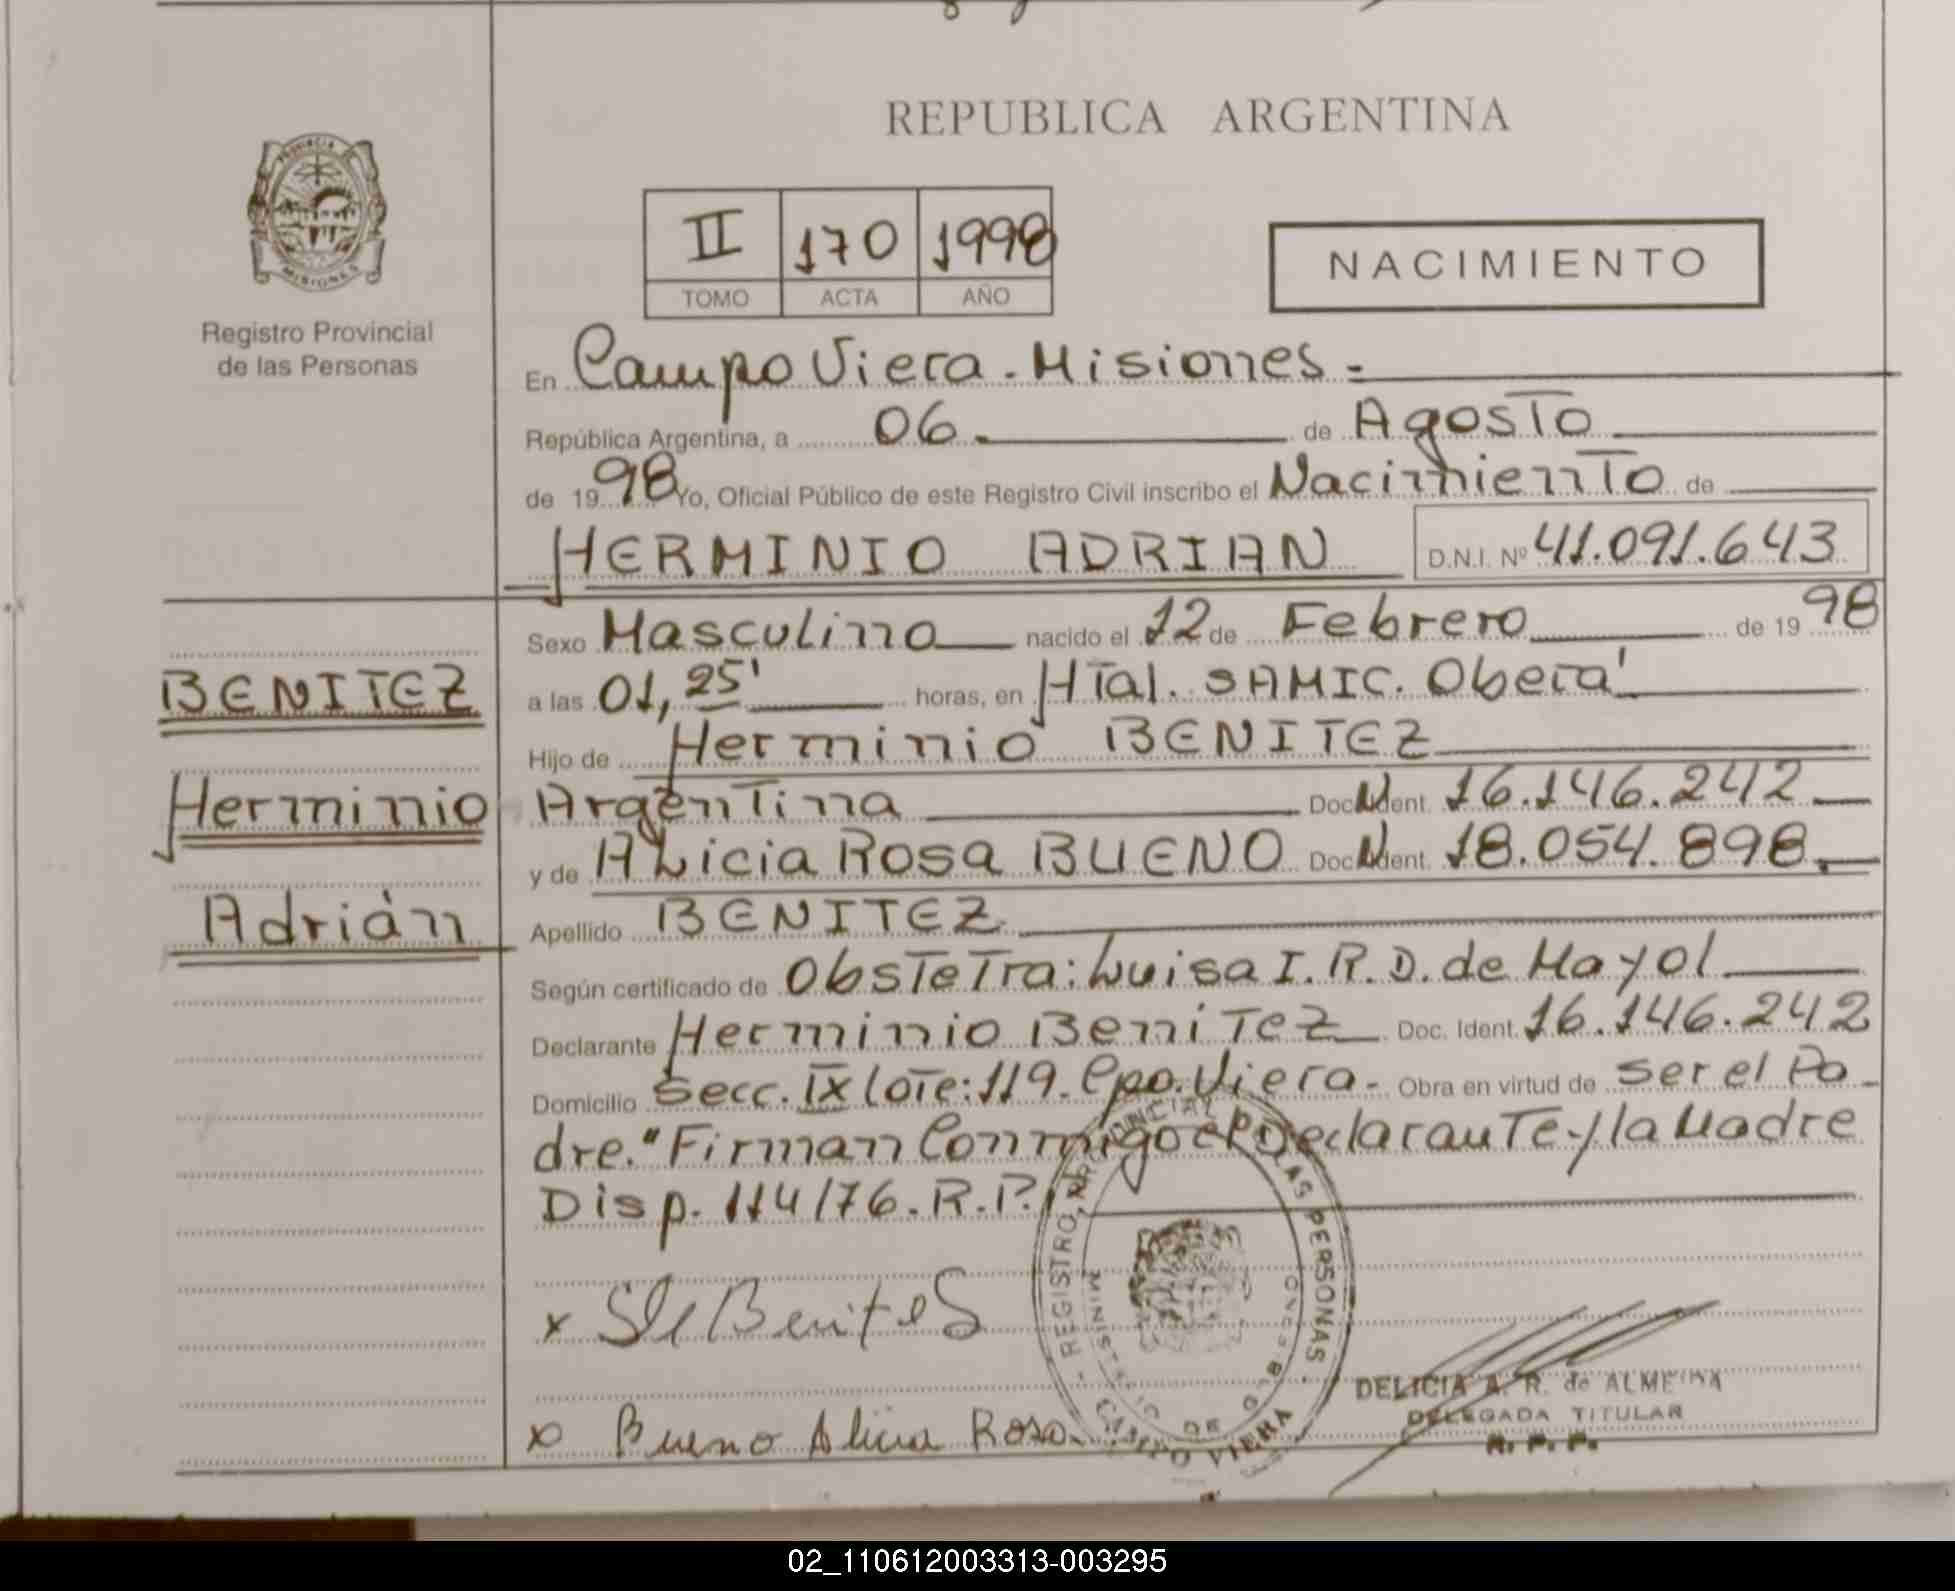 REPUBLICA ARGENTINA
PROVINCIA DE
MISIONES
Registro Provincial
de las Personas
II 170 1998
TOMO ACTA AÑO
NACIMIENTO
En Campo Viera - Misiones -
República Argentina, a 06 de Agosto
de 19 98 Yo, Oficial Público de este Registro Civil inscribo el Nacimiento de
HERMINIO ADRIAN D.N.I. Nº 41.091.643
Sexo Masculino nacido el 12 de Febrero de 19 98
BENITEZ
a las 01, 25' horas, en HTal. SAMIC. Oberá
Hijo de Herminio BENITEZ
Herminio
Argentina Doc. Ident. 16.146.242
y de ALicia Rosa BUENO Doc. Ident. 18.054.898.
Adrián
Apellido BENITEZ
Según certificado de Obstetra: Luisa I. R. D. de Mayol
Declarante Herminio Benitez Doc. Ident. 16.146.242
Domicilio Secc. IX lote: 119. Cpo. Viera - Obra en virtud de ser el Pa
dre. "Firman Conmigo el Declarante y la Madre
Disp. 114/76. R.P.
REGISTRO PROVINCIAL DE LAS PERSONAS
MINISTERIO DE GOBIERNO
CAMPO VIERA
x Benites
x Bueno Alicia Rosa
DELICIA A. R. de ALMEIDA
DELEGADA TITULAR
R. P. P.
02_110612003313-003295